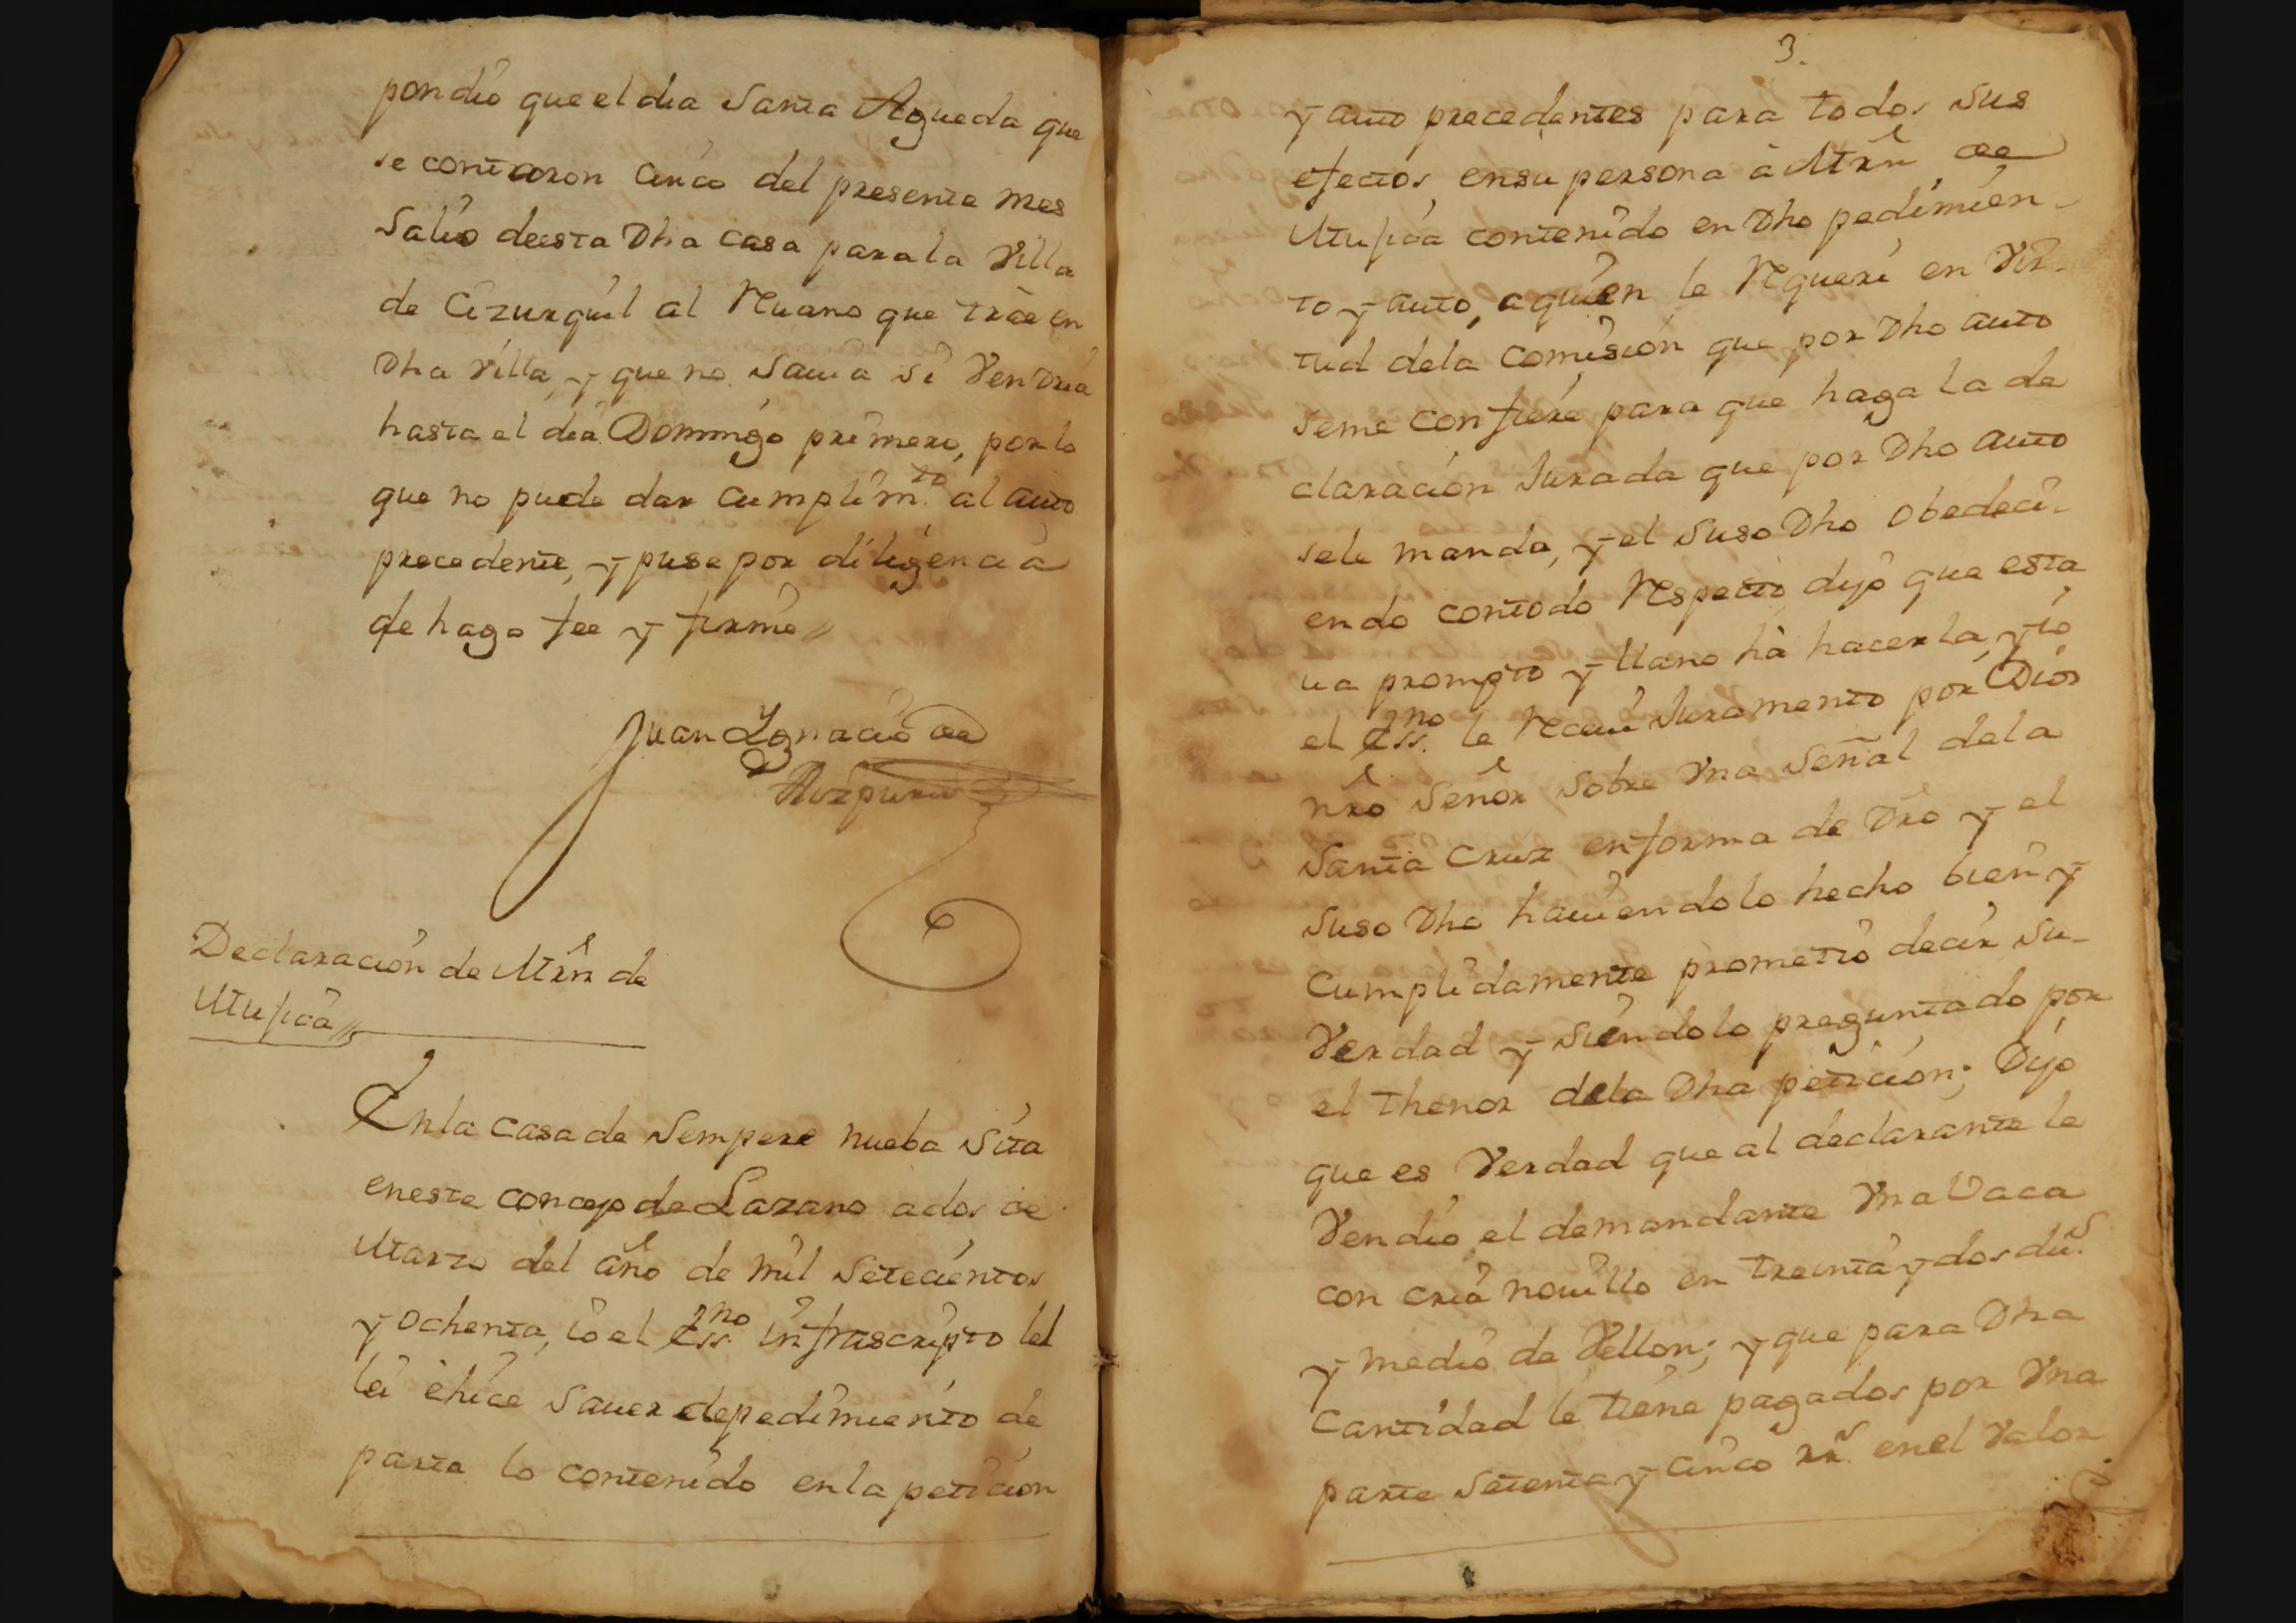 pondio que el dia Santa Agueda que
se contaron cinco del presente mes
Salio deesta Dha casa parala Villa
de Cizurquil al Reuano que trae en
Dha Villa, y que no Sauia Si Vendria
hasta el dia Domingo primero, porlo
que no puede dar cumplim.to al auto
precedente, y puse por diligencia
de hago fee y firme
Juan Ygnacio de
Aizpuru
Declaracion de Mrñ de
Utupioa
En la casa de Sempere nueba Sita
eneste concejo de Lazcano a dos de
Marzo del año de mil Setecientos
y ochenta, io el Ess.no infrascripto lei
lei è hice Sauer de pedimiento de
parte lo contenido en la peticion
3.
y auto precedentes para todos Sus
efectos, ensu persona à Mrñ de
Utupioa contenido en Dho pedimien-
to y auto, a quien le Requeri en Vir-
tud dela Comision que por Dho auto
seme confiere para que haga la de
claracion Jurada que por Dho auto
sele manda, y el Suso Dho obedeci-
endo contodo Respecto dijo que esta
ua prompto y llano hà hacerla, y io
el Ess.no le Receui Juramento por Dios
nrõ Señor Sobre Vna Señal dela
Santa Cruz enforma de Dro y el
Suso Dho hauiendolo hecho bien y
Cumplidamente prometio decir Su-
Verdad y Siendolo preguntado por
el thenor dela Dha peticion; Dijo
que es Verdad que al declarante le
Vendio el demandante Vna Vaca
con cria nouillo en treinta y dos du.s
y medio de Vellon; y que para Dha
Cantidad le tiene pagados por Vna
parte Setenta y cinco rr.s enel Valor